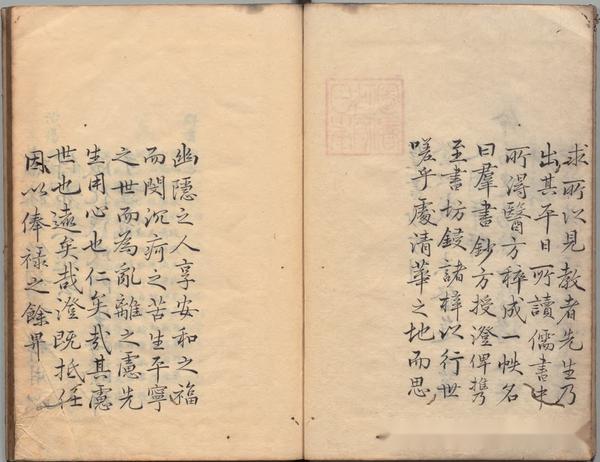 求所以見教者先生乃
出其平日所讀儒書中
所得醫方稡成一帙名
曰羣書鈔方授澄俾携
至書坊鋟諸梓以行世
嗟乎處清華之地而思
幽隱之人享安和之福
而閔沉痾之苦生平寧
之世而為亂離之慮先
生用心也仁矣哉其慮
世也遠矣哉澄既抵任
因以俸祿之餘畀